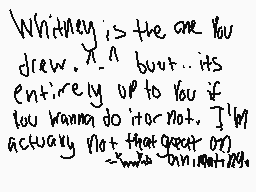 Whitney is the one You
drew. ^-^ buut.. its
entirely up to You if
You wanna do it or not. I'm
actuaxy not that great on
animating.